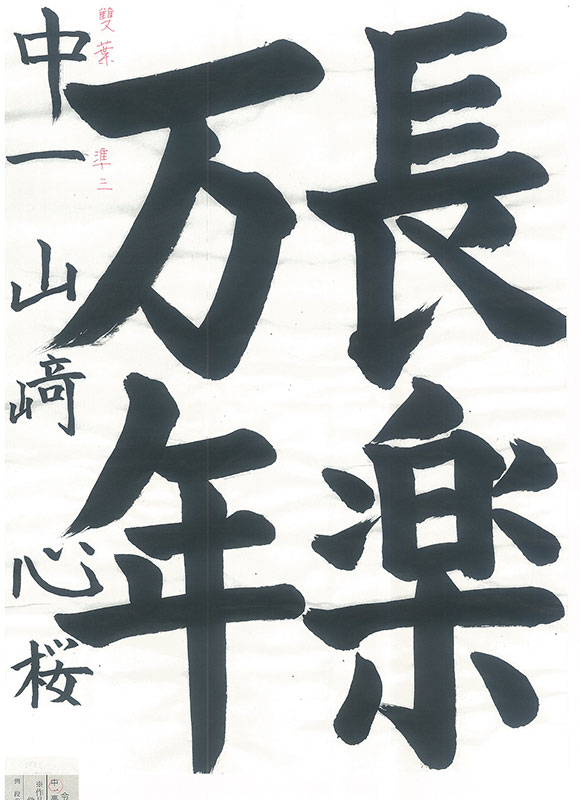 長楽
万年
雙葉 準三
中一 山﨑 心桜